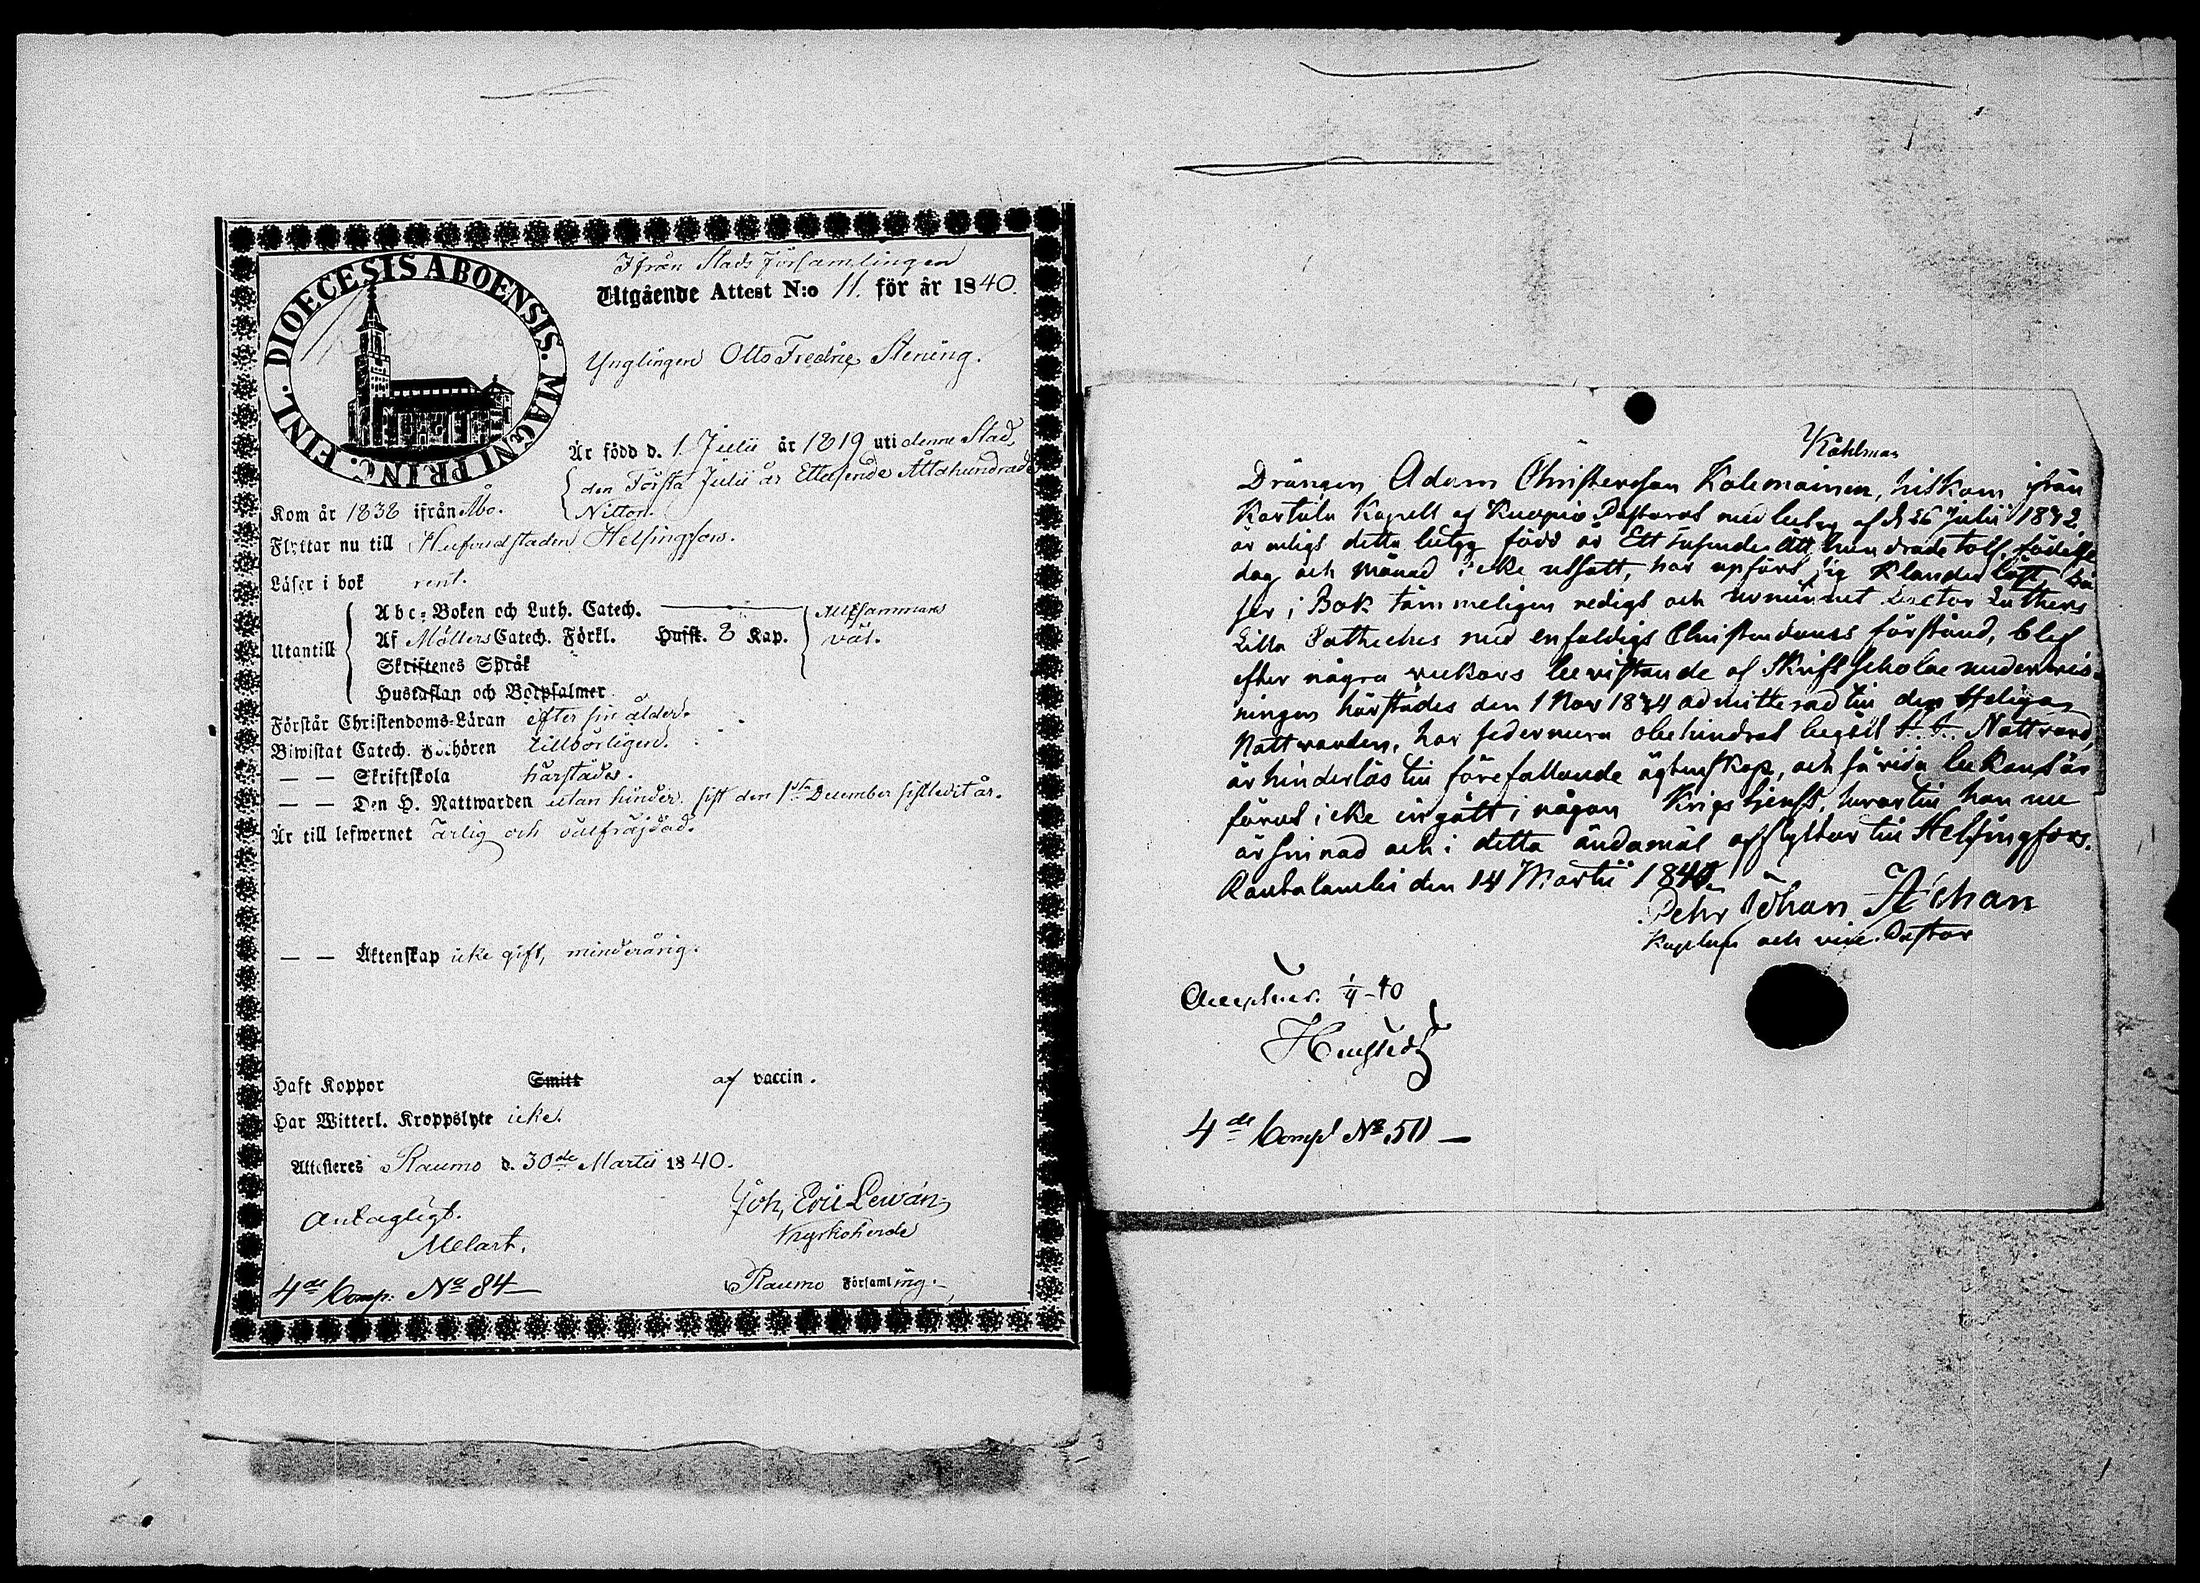 DIOECESIS ABOENSIS. MAGNI PRINC. FINL.
Ifrån Stads Församlingen
Utgående Attest N:o 11. för år 1840.
Ynglingen Otto Fredric Stening.
Är född d. 1. Julii år 1819 uti denne Stad,
den Första Julii år Ettusende Åttahundrade
Nitton.
Kom år 1838 ifrån Åbo.
Flyttar nu till Hufvudstaden Helsingfors.
Läser i bok rent.
Utantill
Abc-Boken och Luth. Catech. Allt sammans
Af Möllers Catech. Förkl. Husst. 8 Kap. väl.
Skriftenes Språk
Hustaflan och Botpsalmer
Förstår Christendoms-Läran efter sin ålder.
Biwistat Catech. Förhören tillbörligen.
— — Skriftskola härstädes.
— — Den H. Nattwarden utan hinder, sist den 1sta December sistledit år.
Är till lefwernet ärlig och välfräjdad.
— — Äktenskap icke gift, minderårig.
Haft Koppor Smitt af vaccin.
Har Witterl. Kroppslyte icke.
Attesteres Raumo d. 30de Martii 1840.
Joh. Eric Lewán,
Kyrkoherde
Antagligt.
Melart.
4de Comp. No 84
Raumo Församling.
Kåhlman
Drängen Adam Christersson Kolemainen, hitkom ifrån
Kartula Kapell af Kuopio Pastorat med betyg af d. 26 Julii 1832
är enligt detta betyg född år Ett tusende Åtta hundrade tolf, födelse
dag och Månad icke utsatt, har upfört sig Klanderlöst, Lä
ser i Bok tämmeligen redigt och utur minnet Doctor Luthers
Lilla Catheches med enfaldigt Christendoms förstånd, blef
efter några veckors bevistande af Skrift Scholae underwis
ningen härstädes den 1 Nov 1834 admitterad till den Heliga
Nattvarden, har sedermera obehindrat begått H. H. Nattvard,
är hinderlös till förefallande ägtenskap, och så vida bekant är
förut icke ingått i någon Krigstjenst, hvartill han nu
är sinnad och i detta ändamål afflyttar till Helsingfors.
Rautalambi den 14 Martii 1840.
Pehr Johan
Kapellan och vice Pastor
1/4 - 40
4de Comp No 50